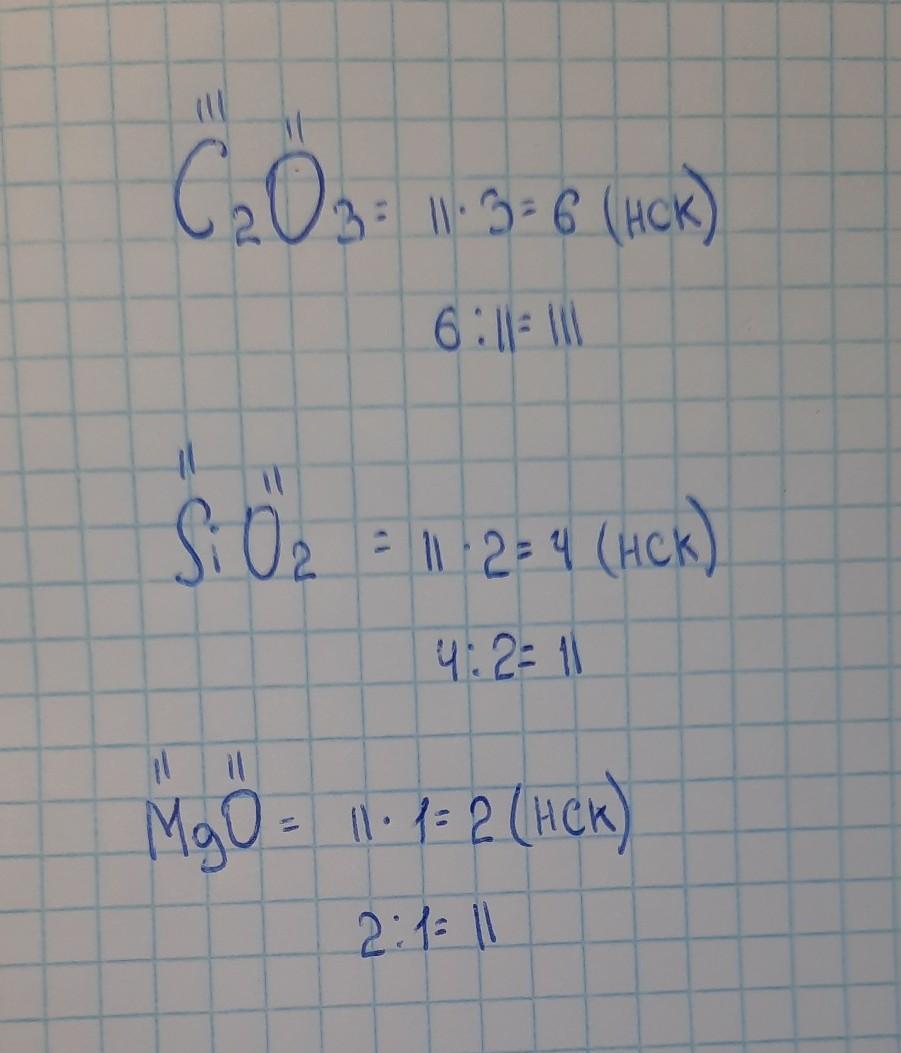 III II
C₂O₃ = II · 3 = 6 (нск)
6 : II = III
II II
SiO₂ = II · 2 = 4 (нск)
4 : 2 = II
II II
MgO = II · 1 = 2 (нск)
2 : 1 = II